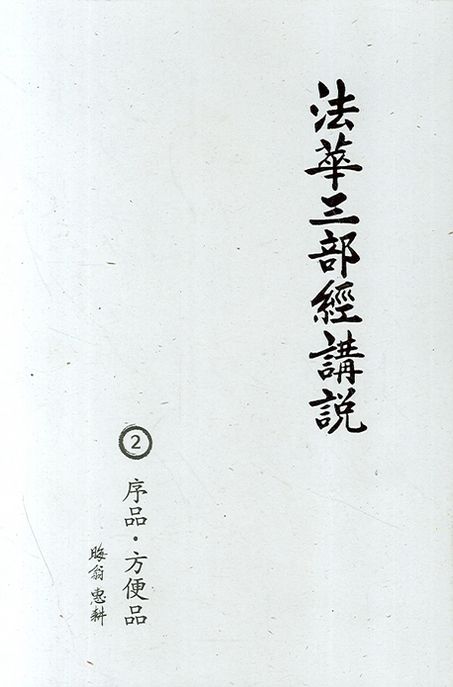 法華三部經講説
2
序品・方便品
晦翁 惠耕